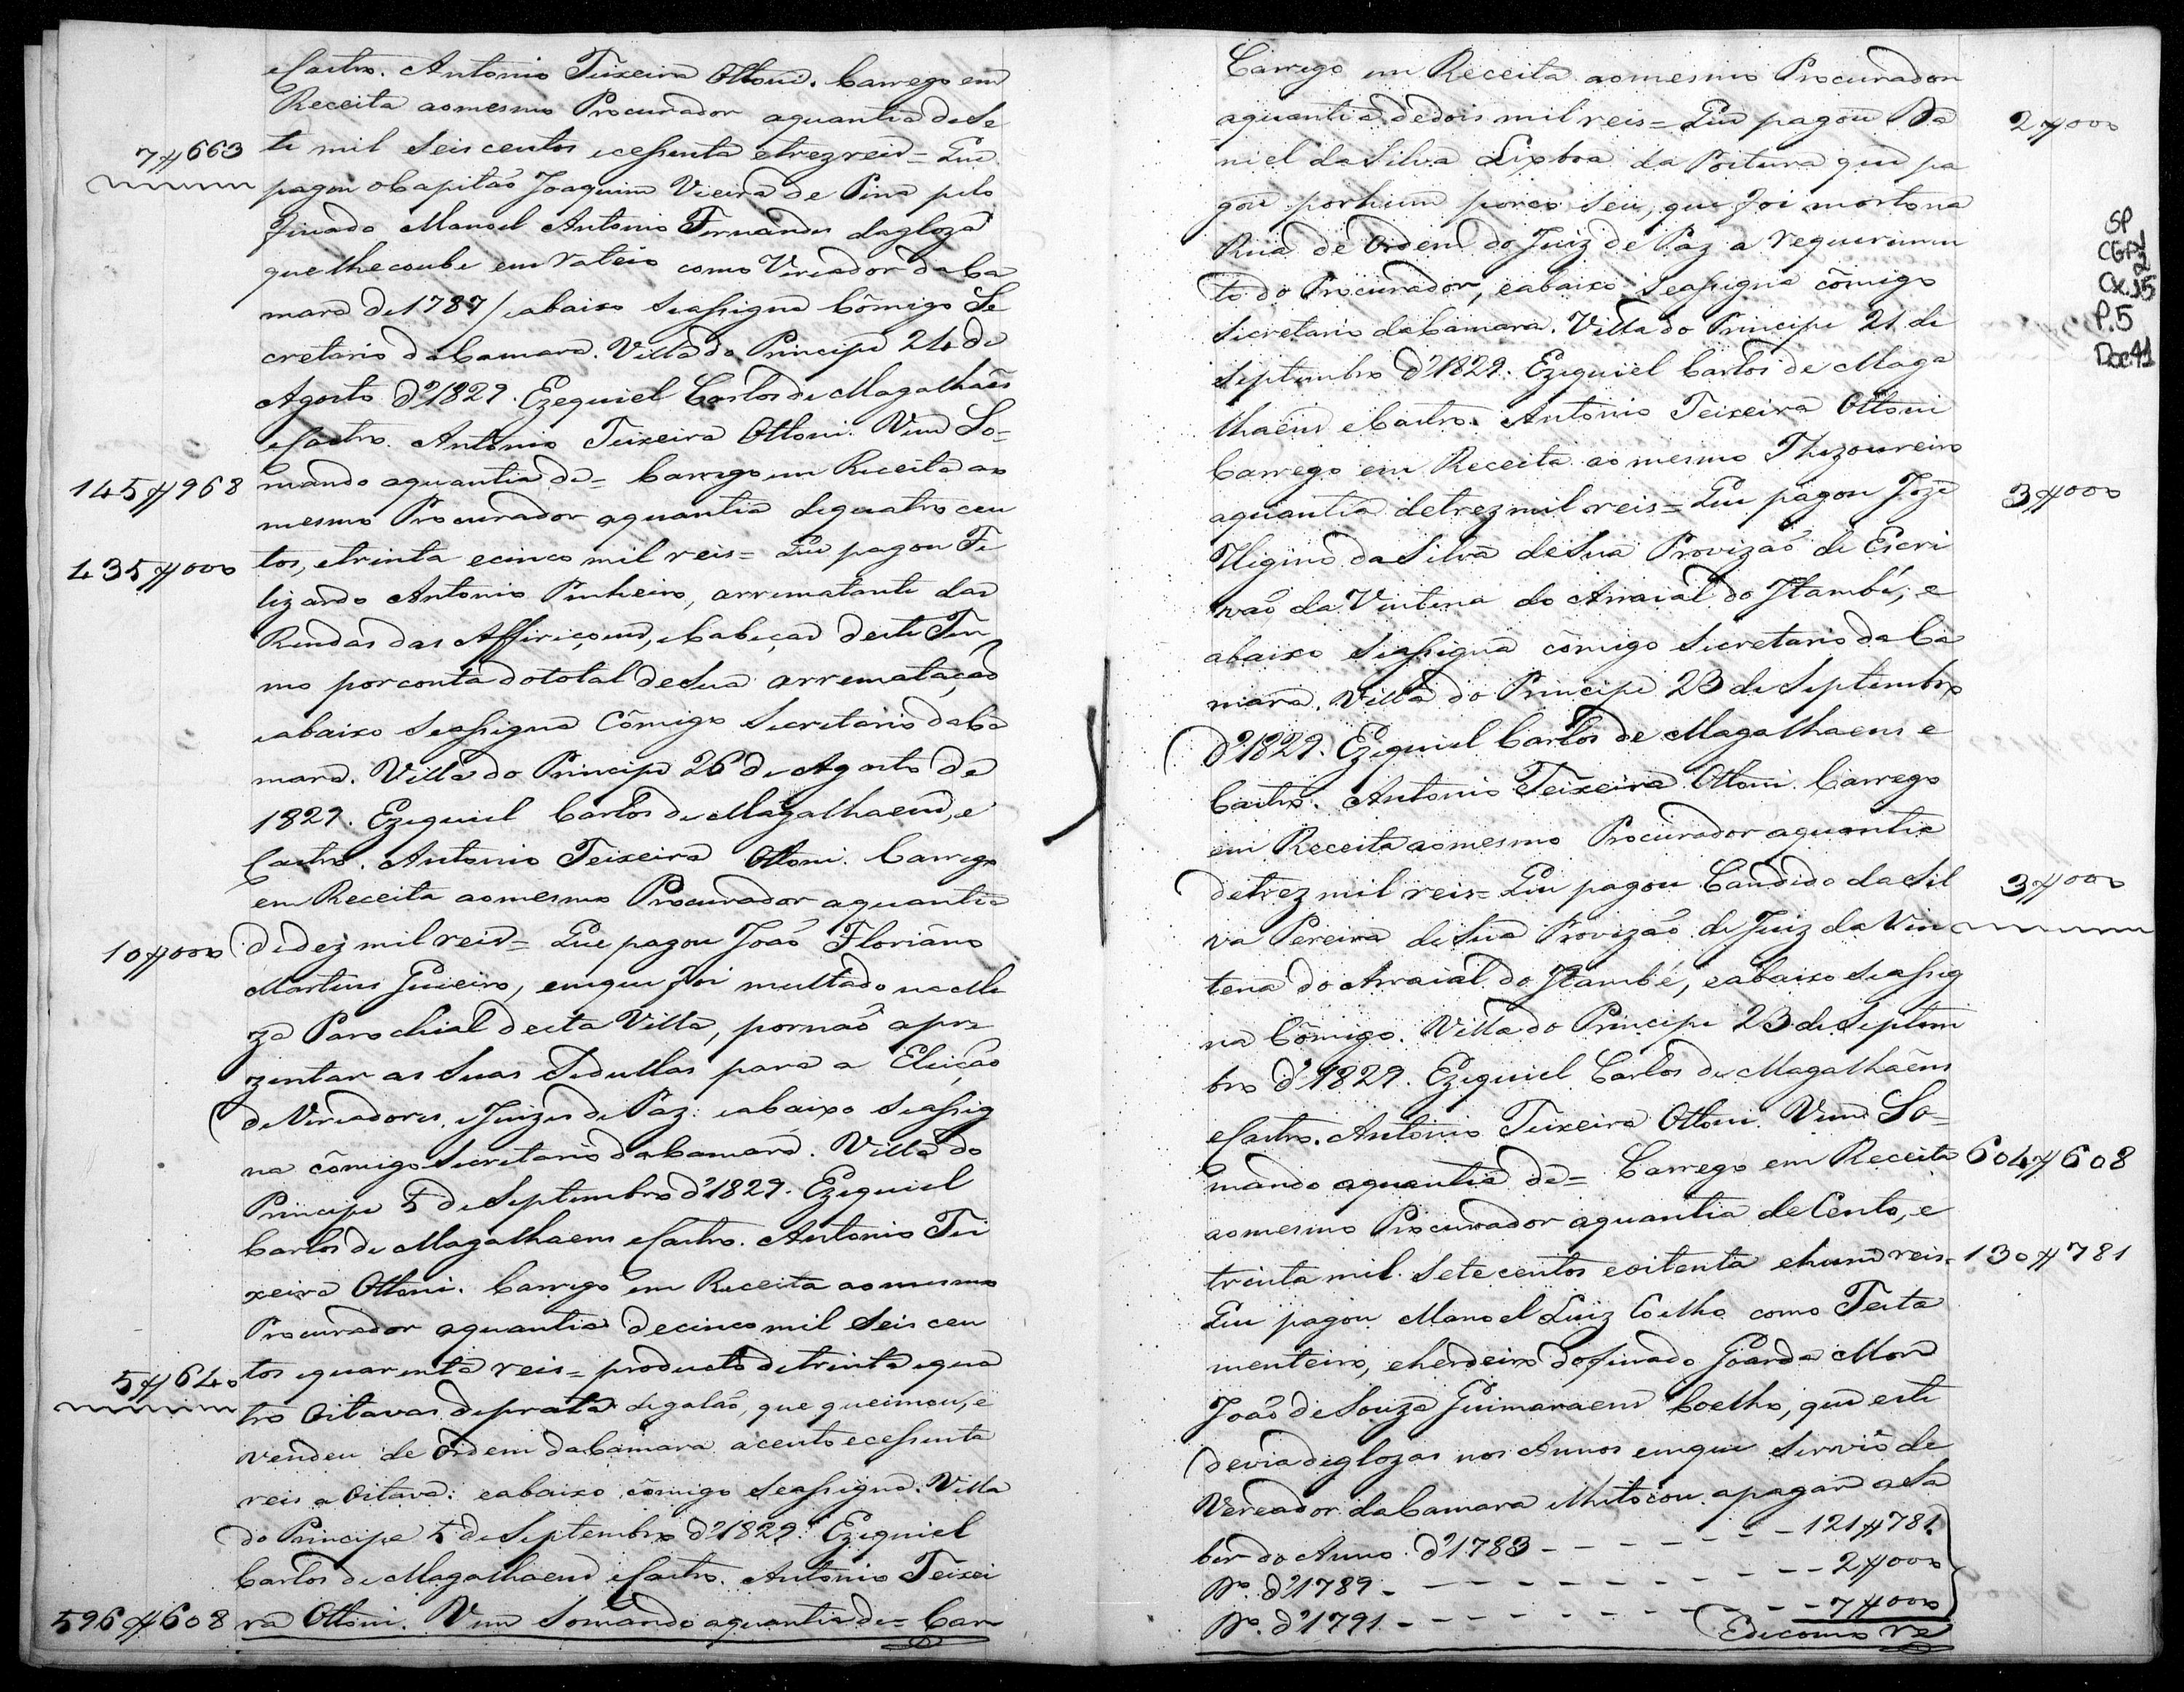 eCastro. Antonio Teixeira Ottoni. Carrego em
Receita aomesmo Procurador aquantia deSe
7#663 te mil Seis centos eceſsenta etrez reis = Que
pagou oCapitão Joaquim Vieira de Pina pelo
finado Manoel Antonio Fernandes dagloza
que lhecoube em rateio como Vereador da Ca
mara de 1787 / eabaixo Seaſsigna Cõmigo Se
cretario daCamara. Villa do Principe 24 de
Agosto d'1829. Ezequiel Carlos de Magalhães
eCastro. Antonio Teixeira Ottoni. Vem So=
145#968 mando aquantia de = Carrego em Receita ao
mesmo Procurador aquantia dequatro cen
435#000 tos, etrinta ecinco mil reis = Que pagou Fe
lizardo Antonio Pinheiro, arrematante das
Rendas das Affiriçoens, eCabeças deste Ter
mo por conta dototal deSua arremataçaõ
eabaixo Seaſsigna Cõmigo Secretario daCa
mara. Villa do Principe 26 de Agosto de
1829. Ezequiel Carlos de Magalhaens, e
Castro. Antonio Teixeira Ottoni. Carrego
em Receita aomesmo Procurador aquantia
10#000 dedez mil reis = Que pagou João Floriano
Martins, emque foi multado na Me
za Parochial desta Villa, pornaõ apre
zentar as Suas Sedullas para a Eleição
deVereadores, eJuizes de Paz: eabaixo Seaſsig
na cõmigo Secretario daCamara. Villa do
Principe 5 de Septembro d'1829. Ezequiel
Carlos de Magalhaens eCastro. Antonio Tei
xeira Ottoni. Carrego em Receita ao mesmo
Procurador aquantia decinco mil Seis cen
5#640 tos equarenta reis = producto detrinta equa
tro Oitavas deprata degalão, que queimou, e
vendeu de Ordem daCamara acento eceſsenta
reis a Oitava: eabaixo cõmigo Seaſsigna. Villa
do Principe 5 de Septembro d'1829. Ezequiel
Carlos de Magalhaens eCastro. Antonio Teixei
596#608 ra Ottoni. Vem Somando aquantia de = Car
Carrego em Receita aomesmo Procurador
aquantia dedois mil reis = Que pagou Da 2#000
niel daSilva Lixboa da Postura que pa
gou porhum porco Seu, que foi morto na
Rua de Ordem do Juiz de Paz a requerimen
to do Procurador, eabaixo Seaſsigna cõmigo
Secretario daCamara. Villa do Principe 21 de
Septembro d'1829. Ezequiel Carlos de Maga
lhaens eCastro. Antonio Teixeira Ottoni
Carrego em Receita ao mesmo Thezoureiro
aquantia detrez mil reis = Que pagou Jozé 3#000
Higino daSilva deSua Provizaõ de Escri
vaõ da Vintena do Arraial do Itambé, e
abaixo Seaſsigna cõmigo Secretario da Ca
mara. Villa do Principe 23 de Septembro
d'1829. Ezequiel Carlos de Magalhaens e
Castro. Antonio Teixeira Ottoni. Carrego
em Receita aomesmo Procurador aquantia
detrez mil reis = Que pagou Candido daSil 3#000
va Pereira deSua Provizaõ de Juiz da Vin
tena do Arraial do Itambé, eabaixo Seaſsig
na Cõmigo. Villa do Principe 23 de Septem
bro d'1829. Ezequiel Carlos de Magalhaens
eCastro. Antonio Teixeira Ottoni. Vem So=
mando aquantia de = Carrego em Receita 604#608
aomesmo Procurador aquantia deCento, e
trinta mil Sete centos eoitenta ehum reis = 130#781
Que pagou Manoel Luiz Coelho como Testa
menteiro, eherdeiro dofinado Goarda Mor
João deSouza Guimaraens Coelho, que este
devia deglozas nos Annos emque Servio de
Vereador daCamara elhetocou apagar aSa
ber do Anno d'1783 - - - - - - - 121#781
Do. d'1789 - - - - - - - - - 2#000
Do. d'1791 - - - - - - - - - 7#000
Edecomo re
SP
CGP2
Cx.15
P.5
Doc41